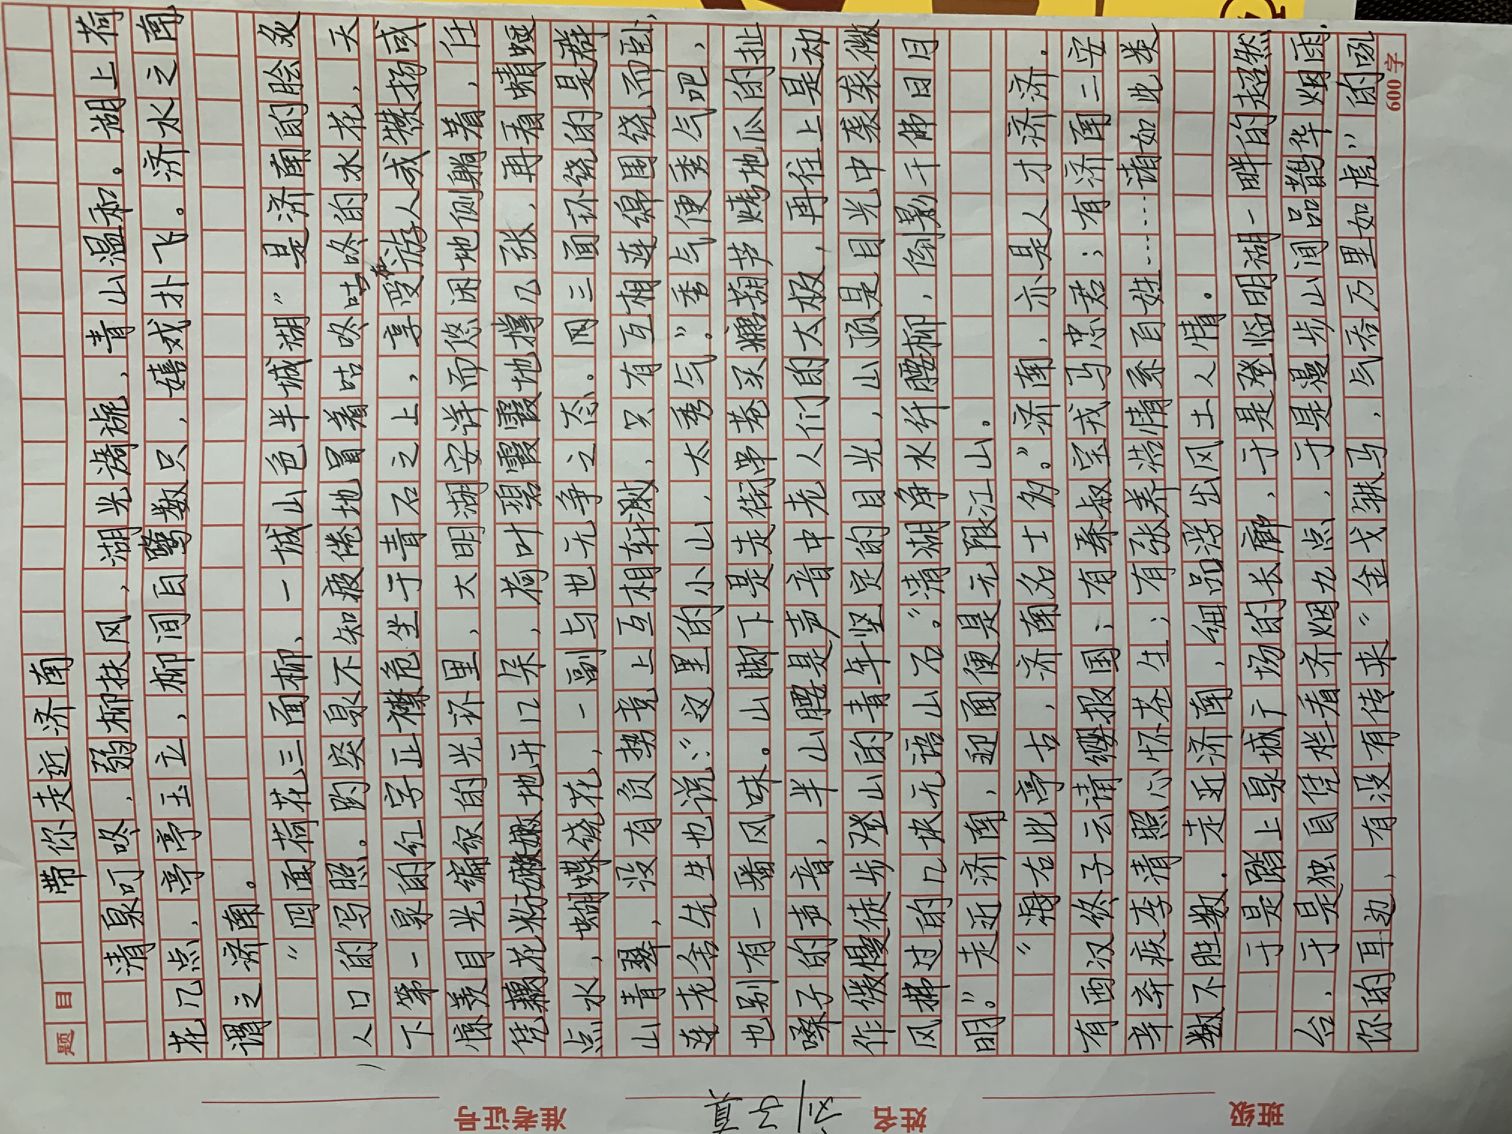 题目 带你走近济南
清泉叮咚，弱柳扶风，湖光旖旎，青山温和。湖上荷
花几点，亭亭玉立，柳间白鹭数只，嬉戏扑飞。济水之南
谓之济南。
“四面荷花三面柳、一城山色半城湖”是济南的脍炙
人口的写照。趵突泉不知疲倦地冒着咕咚咕咚的水花，天
下第一泉的红字正襟危坐于青石之上，享受在游人或赞扬或
惊羡目光编织的光环里，大明湖安详而悠闲地侧躺着，任
凭藕花粉嫩嫩地开几朵，荷叶碧霞霞地撑几张，再看蜻蜓
点水，蝴蝶绕花，一副与世无争之态。网三面环绕的是群
山青翠，没有负势竞上互相轩邈，只有互相连绵围绕而卧，
连老舍先生也说：“这里的小山，太秀气。”秀气便秀气吧，
也别有一番风味。山脚下是走街串巷买糖葫芦烤地瓜的扯
嗓子的声音，半山腰是声音中老人们的太极，再往上是动
作缓慢徒步登山的青年坚定的目光，山顶是目光中袭袭微
风拂过的几块无语山石。“清湖角水纤腰柳，倒影千佛日月
明。”走近济南，迎面便是无限江山。
“海右此亭古，济南名士多。”济南，亦是人才济济.
有西汉终子云请缨报国；有秦叔宝戎马忠君；有济南二安
辛弃疾李清照心怀苍生；有张养浩情系百姓……诸如此类
数不胜数．走近济南，细品浮出风土人情。
于是踏上泉城广场的长廊，于是登临明湖一畔的超然
台，于是独自凭栏看齐烟九点，于是漫步山间品鹊华烟雨.
你的耳边，有没有传来“金戈铁马，气吞万里如虎”的吼
600字
准考证号
姓名 刘子真
班级